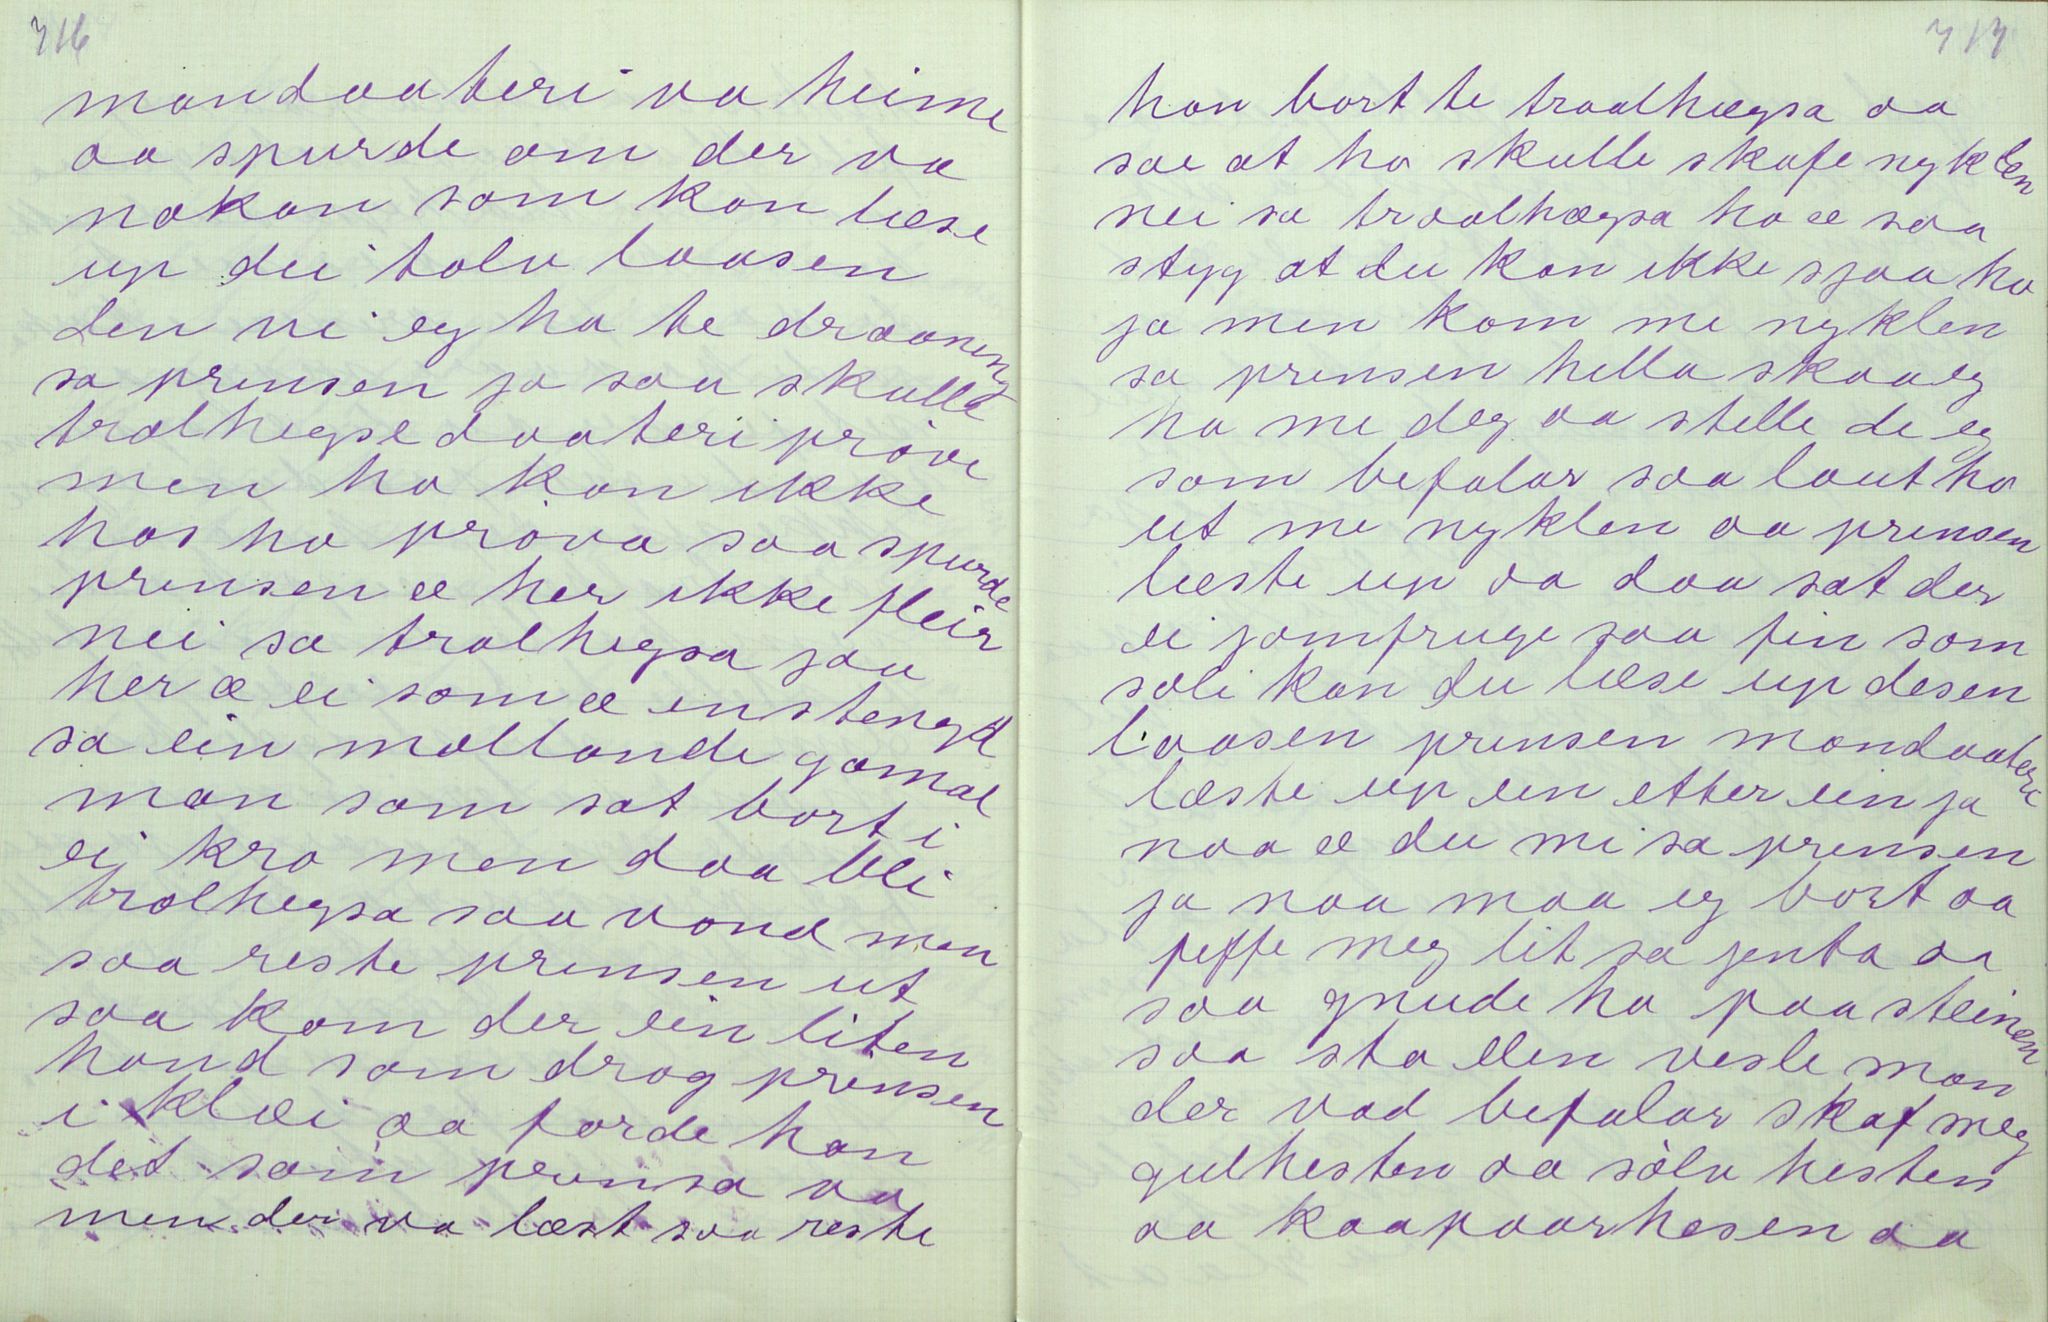 716
mandaateri va heime
aa spurde om der va
nokon som kan læse
up dei tolv laasen
den vi eg ha te draaning
sa prinsen ja saa skulle
trolhegsedaateri pröve
men ho kan ikke
has ho pröva saa spurde
prinsen æ her ikke fleir
nei sa trolhegsa jau
her æ ei som æ instengd
sa ein mollande gamal
man som sat bort i
ei kro men daa blei
trolhegsa saa vond men
saa reste prinsen ut
saa kom der ein liten
hond som drog prinsen
i klæi aa förde han
det som prinsa va
men der va læst saa reste
717
han bort te traalhægsa aa
sae at ho skulle skafe nyklen
nei sa traalhægsa ho æ saa
styg at du kan ikke sjaa ho
ja men kom me nyklen
sa prinsen hella skaa eg
ha me deg aa stelle de eg
som befalar saa laut ho
ut me nyklen aa prinsen
læste up aa daa sat der
ei jomfruge saa fin som
soli kan du læse up desen
laasen prinsen mandaateri
læste up ein etter ein ja
naa æ du mi sa prinsen
ja naa maa eg bort aa
peffe meg lit sa jenta aa
saa gnude ho paa steinen
saa sto den vesle man
der vad befalar skaf meg
gulhesten aa sölv hesten
aa kaapaarhesen aa